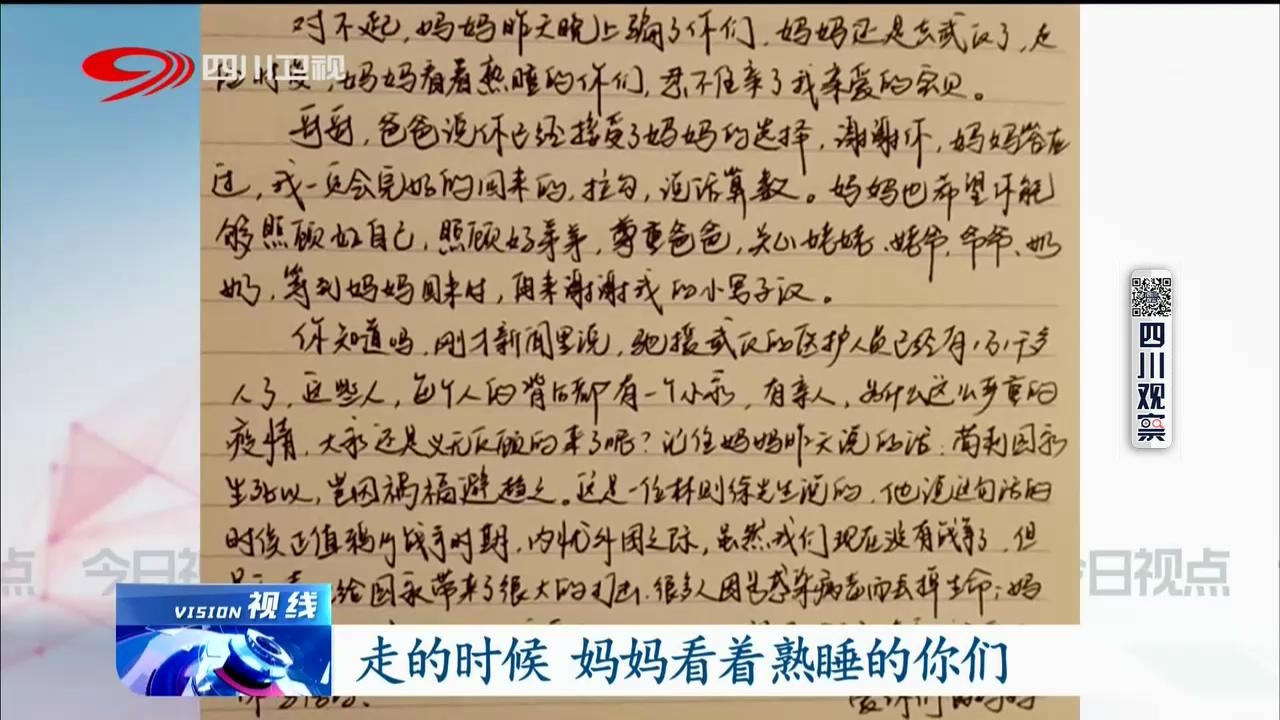 对不起,妈妈昨天晚上骗了你们,妈妈还是去武汉了,走
四川卫视
的时候,妈妈看着熟睡的你们,忍不住亲了我亲爱的宝贝。
哥哥,爸爸说你已经接受了妈妈的选择,谢谢你,妈妈答应
过,我一定会完好的回来的,拉勾,说话算数。妈妈也希望你能
够照顾好自己,照顾好弟弟,尊重爸爸,关心姥姥、姥爷、爷爷、奶
奶,等到妈妈回来时,再来谢谢我的小男子汉。
你知道吗,刚才新闻里说,驰援武汉的医护人员已经有1万1千多
人了,这些人,每个人的背后都有一个小家,有亲人,为什么这么严重的
疫情,大家还是义无反顾的来了呢?记住妈妈昨天说的话:苟利国家
生死以,岂因祸福避趋之。这是一位林则徐先生说的,他说这句话的
时候正值鸦片战争时期,内忧外困之际,虽然我们现在没有战争了,但
给国家带来了很大的打击,很多人因为感染病毒而去掉生命;妈
四川观察
今日视点
日视点
VISION 视线
走的时候 妈妈看着熟睡的你们